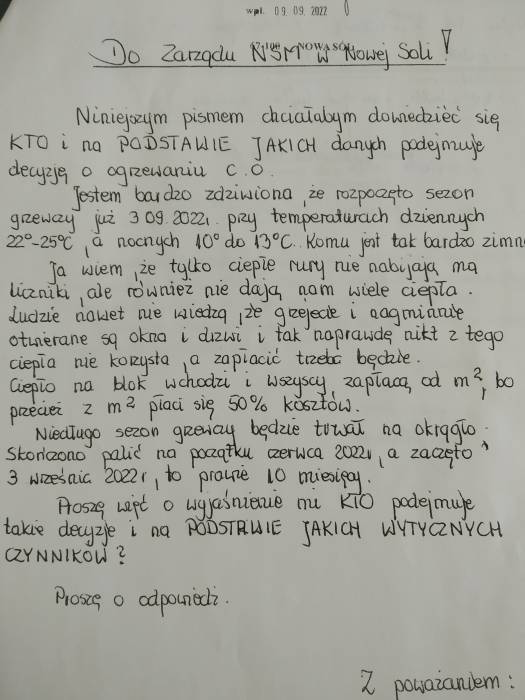 wpł. 09. 09. 2022
Do Zarządu NSM w Nowej Soli!
Niniejszym pismem chciałabym dowiedzieć się
KTO i na PODSTAWIE JAKICH danych podejmuje
decyzję o ogrzewaniu C.O.
Jestem bardzo zdziwiona, że rozpoczęto sezon
grzewczy już 3 09.2022r. przy temperaturach dziennych
22°-25°C, a nocnych 10° do 13°C. Komu jest tak bardzo zimno
Ja wiem, że tylko ciepłe rury nie nabijają na
liczniki, ale również nie dają nam wiele ciepła.
Ludzie nawet nie wiedzą, że grzejecie i nagminnie
otwierane są okna i drzwi i tak naprawdę nikt z tego
ciepła nie korzysta, a zapłacić trzeba będzie.
Ciepło na blok wchodzi i wszyscy zapłacą od m², bo
przecież z m² płaci się 50% kosztów.
Niedługo sezon grzewczy będzie trwał na okrągło.
Skończono palić na początku czerwca 2022r, a zaczęto
3 września 2022r, to prawie 10 miesięcy.
Proszę więc o wyjaśnienie mi KTO podejmuje
takie decyzje i na PODSTAWIE JAKICH WYTYCZNYCH
CZYNNIKÓW?
Proszę o odpowiedź.
Z poważaniem: